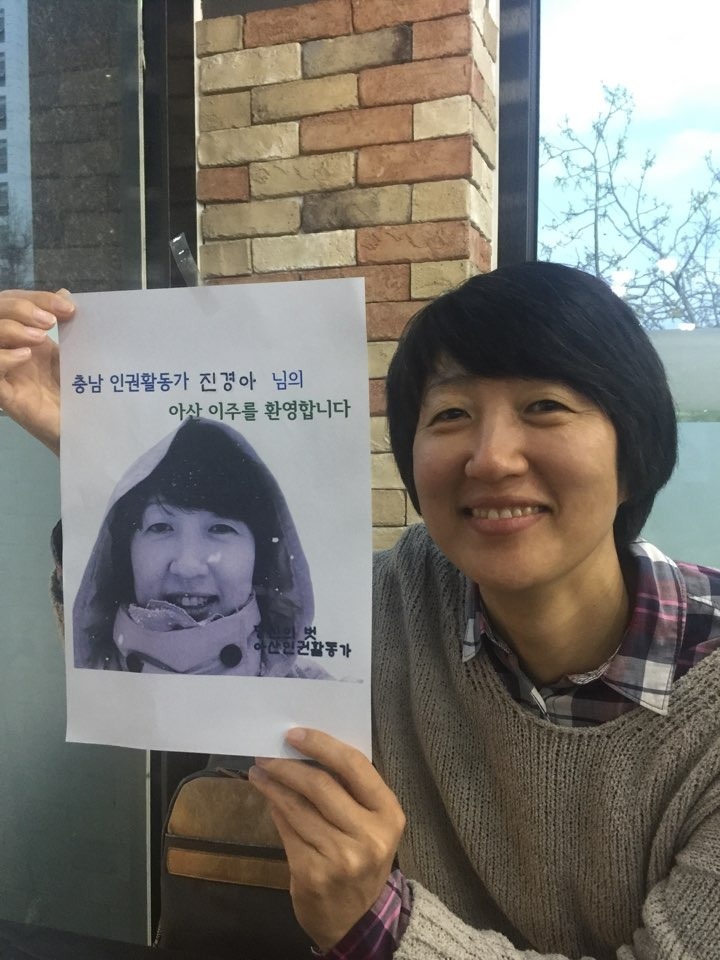 충남 인권활동가 진경아 님의
아산 이주를 환영합니다
벗
아산인권활동가